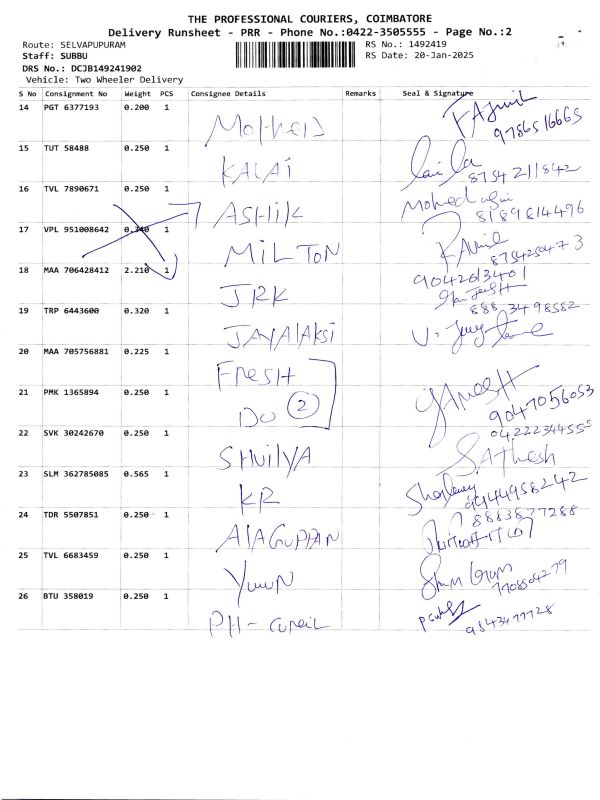 THE PROFESSIONAL COURIERS, COIMBATORE
Delivery Runsheet - PRR - Phone No.:0422-3505555 - Page No.:2
Route: SELVAPUPURAM
RS No.: 1492419
Staff: SUBBU
RS Date: 20-Jan-2025
DRS No.: DCJB149241902
Vehicle: Two Wheeler Delivery
S No Consignment No Weight PCS Consignee Details Remarks Seal & Signature
14 PGT 6377193 0.200 1
Mothers
9786516665
15 TUT 58488 0.250 1
KALAI
8754211842
16 TVL 7890671 0.250 1
ASHIK
8189814496
17 VPL 951008642 0.340 1
MILTON
8754250473
18 MAA 706428412 2.210 1
9042613401
JRK
888 3498582
19 TRP 6443600 0.320 1
JAYALAKSI
20 MAA 705756881 0.225 1
FRESH
21 PMK 1365894 0.250 1
DO 2
GANESH
9047056053
22 SVK 30242670 0.250 1
04222344555
SHUILYA
SATHESH
23 SLM 362785085 0.565 1
KR
9944958242
24 TDR 5507851 0.250 1
8883877288
ALAGUPPAN
25 TVL 6683459 0.250 1
Yuun
7708504279
26 BTU 358019 0.250 1
PH-
9843477728